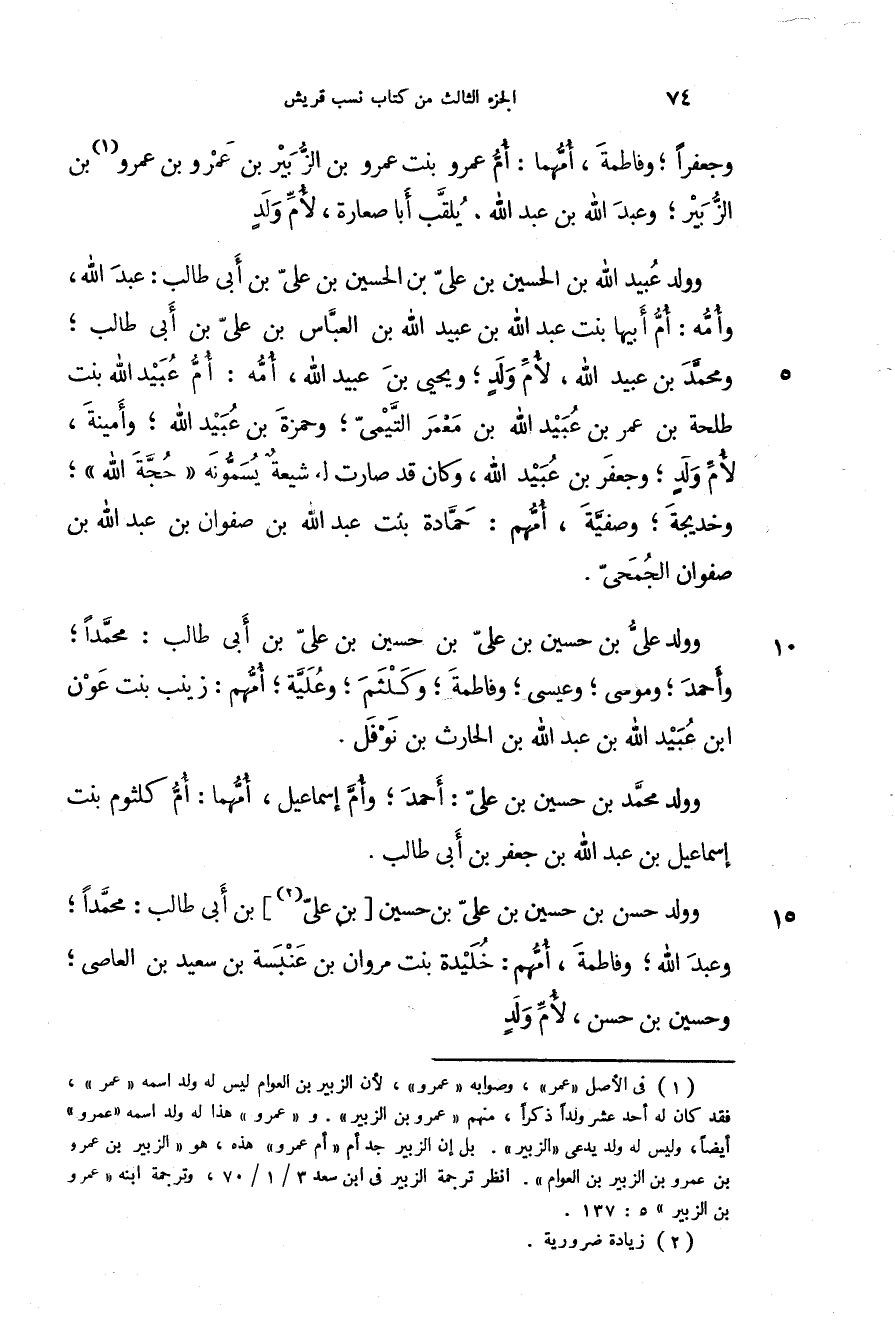 ٧٤ الجزء الثالث من كتاب نسب قريش
وجعفراً ؛ وفاطمةَ ، أُمُّهما : أُمُّ عمرو بنت عمرو بن الزُّبَيْر بن عَمْرو بن عمرو(١) بن
الزُّبَيْر ؛ وعبدَ الله بن عبد الله . يُلقَّب أَبا صعارة ، لأُمِّ وَلَدٍ
وولد عُبيد الله بن الحسين بن علىّ بن الحسين بن علىّ بن أَبى طالب : عبدَ الله ،
وأُمُّه : أُمُّ أَبيها بنت عبد الله بن عبيد الله بن العبَّاس بن علىّ بن أَبى طالب ؛
٥ ومحمَّدَ بن عبيد الله ، لأُمِّ وَلَدٍ ؛ ويحيى بنَ عبيد الله ، أُمُّه : أُمُّ عُبَيْد الله بنت
طلحة بن عمر بن عُبَيْد الله بن مَعْمَر التَّيْمىّ ؛ وحمزةَ بن عُبَيْد الله ؛ وأَمينةَ ،
لأُمِّ وَلَدٍ ؛ وجعفرَ بن عُبَيْد الله ، وكان قد صارت له شيعةٌ يُسَمُّونَه « حُجَّةَ الله » ؛
وخديجةَ ؛ وصفيَّةَ ، أُمُّهم : حَمَّادة بنت عبد الله بن صفوان بن عبد الله بن
صفوان الجُمَحىّ .
١٠ وولد علىُّ بن حسين بن علىّ بن حسين بن علىّ بن أَبى طالب : محمَّداً ؛
وأَحمدَ ؛ وموسى ؛ وعيسى ؛ وفاطمةَ ؛ وكَلْثَمَ ؛ وعُلَيَّة ؛ أُمُّهم : زينب بنت عَوْن
ابن عُبَيْد الله بن عبد الله بن الحارث بن نَوْفَل .
وولد محمَّد بن حسين بن علىّ : أَحمدَ ؛ وأُمَّ إسماعيل ، أُمُّهما : أُمُّ كلثوم بنت
إسماعيل بن عبد الله بن جعفر بن أَبى طالب .
١٥ وولد حسن بن حسين بن علىّ بن حسين [ بن علىّ(٢) ] بن أَبى طالب : محمَّداً ؛
وعبدَ الله ؛ وفاطمةَ ، أُمُّهم : خُلَيْدة بنت مروان بن عَنْبَسة بن سعيد بن العاصى ؛
وحسين بن حسن ، لأُمِّ وَلَدٍ
( ١ ) فى الأصل «عمر» ، وصوابه «عمرو» ، لأن الزبير بن العوام ليس له ولد اسمه « عمر » ،
فقد كان له أحد عشر ولداً ذكراً ، منهم « عمرو بن الزبير » . و « عمرو » هذا له ولد اسمه «عمرو»
أيضاً، وليس له ولد يدعى «الزبير» . بل إن الزبير جد أم «أم عمرو» هذه ، هو « الزبير بن عمرو
بن عمرو بن الزبير بن العوام» . انظر ترجمة الزبير فى ابن سعد ٣ / ١ / ٧٠ ، وترجمة ابنه «عمرو
بن الزبير » ٥ : ١٣٧ .
( ٢ ) زيادة ضرورية .